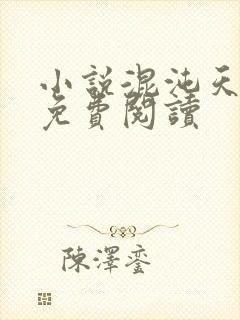 小說混沌天
免費閱讀
陳澤鑾